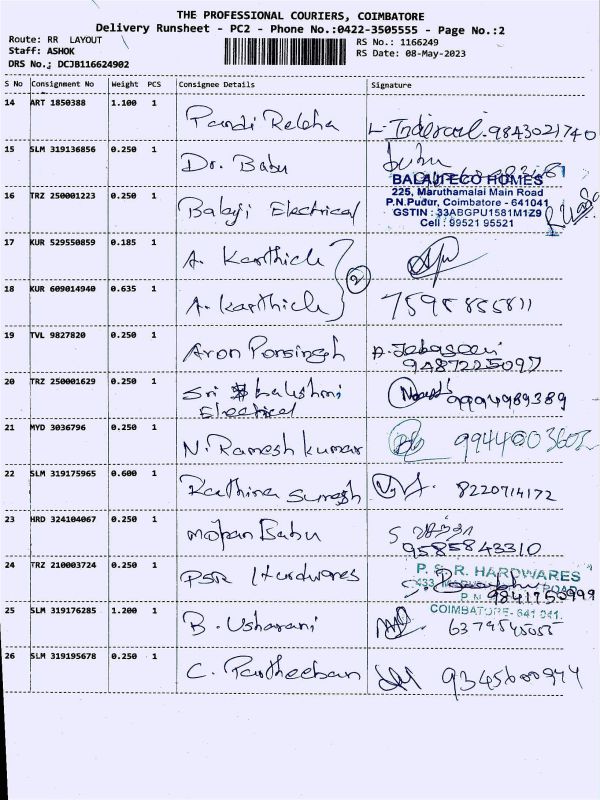 THE PROFESSIONAL COURIERS, COIMBATORE
Delivery Runsheet - PC2 - Phone No.:0422-3505555 - Page No.:2
Route: RR LAYOUT
RS No.: 1166249
Staff: ASHOK
RS Date: 08-May-2023
DRS No.; DCJB116624902
S No Consignment No Weight PCS Consignee Details Signature
14 ART 1850388 1.100 1 Pandi Rekha 9843021740
15 SLM 319136856 0.250 1 Dr. Babu Babu
16 TRZ 250001223 0.250 1 Balaji Electrical
BALAJI ECO HOMES
225, Maruthamalai Main Road
P.N.Pudur, Coimbatore - 641041
GSTIN : 33ABGPU1581M1Z9
Cell : 99521 95521
17 KUR 529550859 0.185 1 A. Karthick
2
18 KUR 609014940 0.635 1 A. Karthick 7595855811
19 TVL 9827820 0.250 1 Aron Ponsingh A. Jebaseeli
9487225097
20 TRZ 250001629 0.250 1 Sri Lakshmi 9994989389
Electrical
21 MYD 3036796 0.250 1 N. Ramesh kumar 9944003602
22 SLM 319175965 0.600 1 Rathina Suresh 8220714172
23 HRD 324104067 0.250 1 Mohan Babu
9585843310
24 TRZ 210003724 0.250 1 PSR Hardwares
P. S. R. HARDWARES
433, ROAD
P.N. 9841753999
COIMBATORE- 641 041.
25 SLM 319176285 1.200 1 B. Usharani 6379545055
26 SLM 319195678 0.250 1 C. Partheeban 9345600944